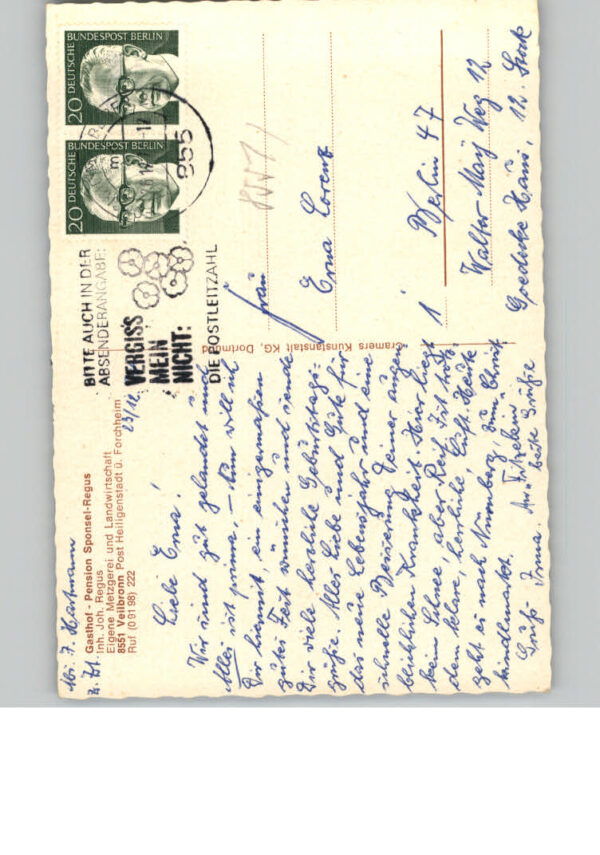 Abs. I. Hartmann
z. Zt.
Gasthof - Pension Sponsel-Regus
Inh. Joh. Regus
Eigene Metzgerei und Landwirtschaft
8551 Veilbronn Post Heiligenstadt ü. Forchheim
Ruf (0 91 98) 222
Liebe Erna!
Wir sind gut gelandet und
alles ist prima, – nun will ich
Dir hiermit, ein einigermaßen
gutes Fest wünschen und sende
Dir viele herzliche Geburtstags-
grüße. Alles Liebe und Gute für
das neue Lebensjahr und eine
schnelle Besserung Deiner augen-
blicklichen Krankheit. Hier liegt
kein Schnee, aber Reif. Ist trotz-
dem klare, herrliche Luft. Heute
geht es nach Nürnberg, zum Christ-
kindlmarkt.
Irma. beste Grüße
BITTE AUCH IN DER
ABSENDERANGABE:
VERGISS
MEIN
NICHT:
DIE POSTLEITZAHL
20 DEUTSCHE BUNDESPOST BERLIN
20 DEUTSCHE BUNDESPOST BERLIN
855
m
Cramers Kunstanstalt KG, Dortmund
Frau
Erna Lorenz
1 Berlin 47
Walter May Weg 12
Goedecke Haus, 12. Stock